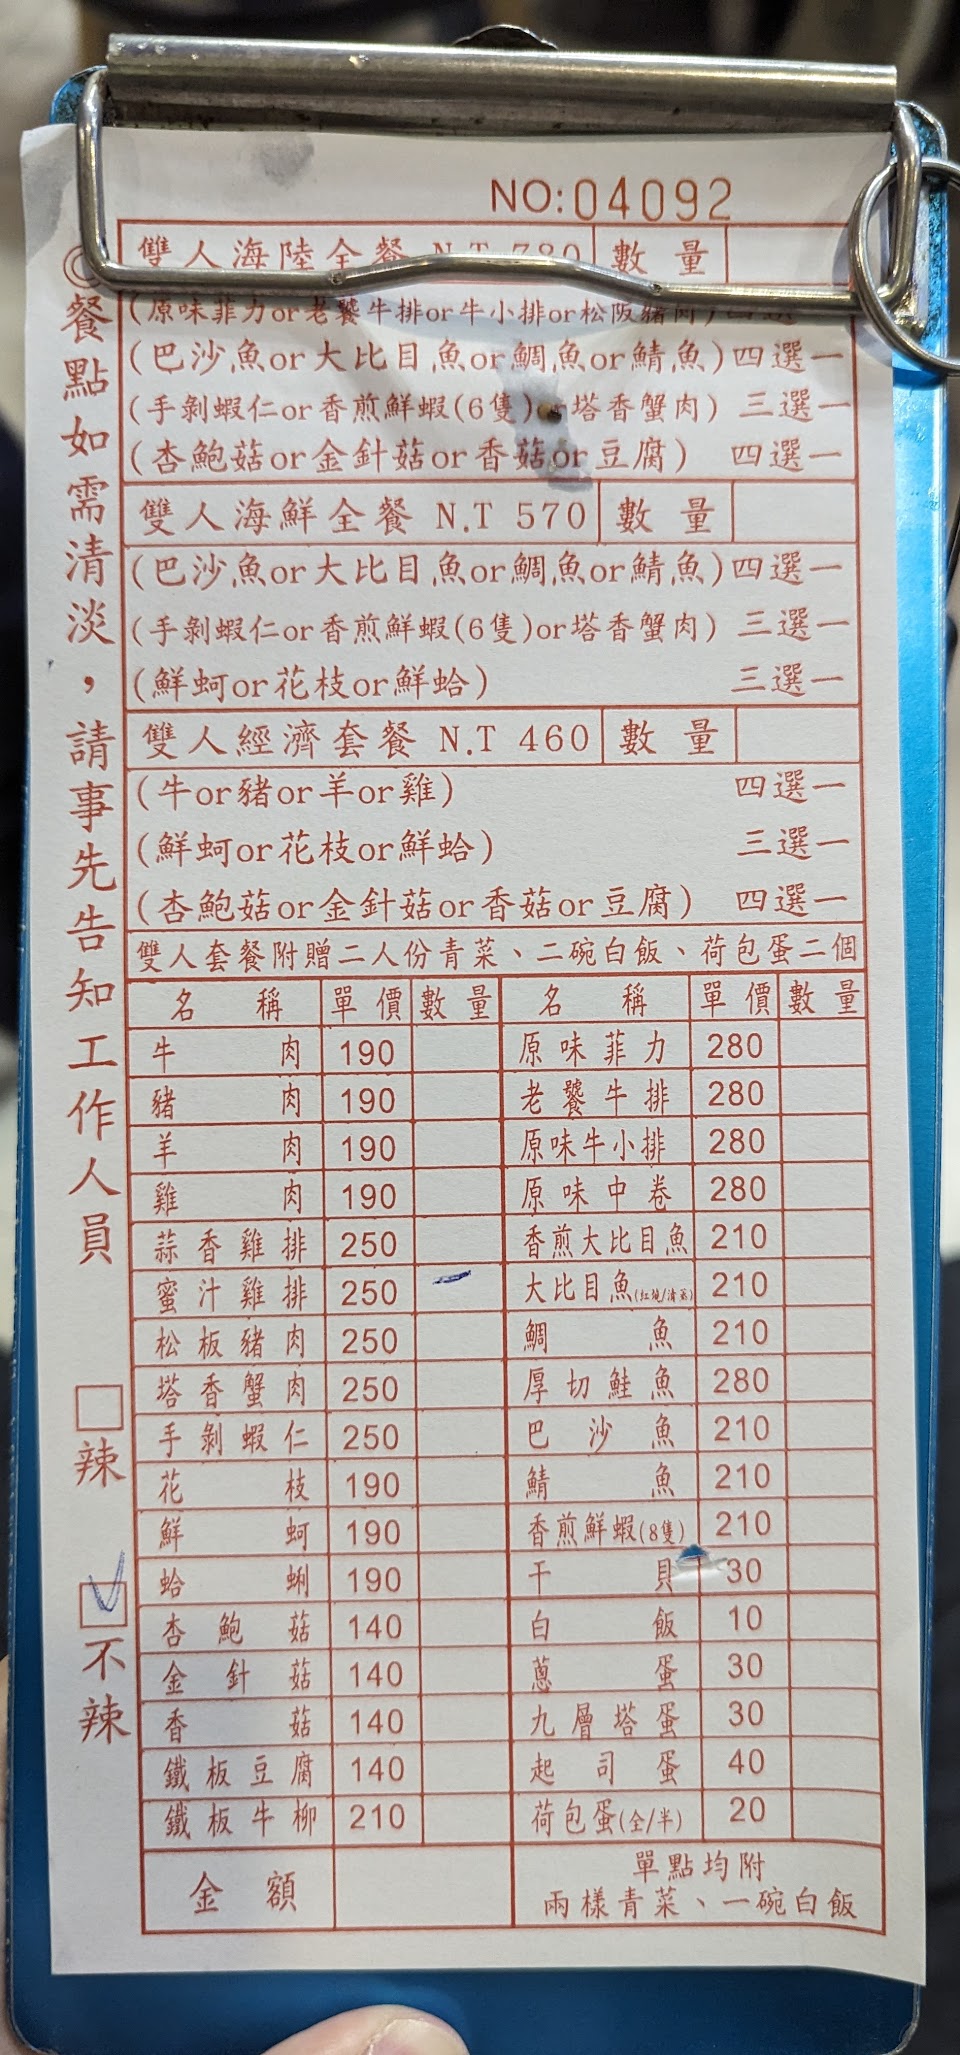 NO:04092
雙人海陸全餐 N.T 780 數量
(原味菲力or老饕牛排or牛小排or松阪豬肉) 四選一
(巴沙魚or大比目魚or鯛魚or鯖魚) 四選一
(手剝蝦仁or香煎鮮蝦(6隻) 塔香蟹肉) 三選一
(杏鮑菇or金針菇or香菇or豆腐) 四選一
雙人海鮮全餐 N.T 570 數量
(巴沙魚or大比目魚or鯛魚or鯖魚) 四選一
(手剝蝦仁or香煎鮮蝦(6隻)or塔香蟹肉) 三選一
(鮮蚵or花枝or鮮蛤) 三選一
雙人經濟套餐 N.T 460 數量
(牛or豬or羊or雞) 四選一
(鮮蚵or花枝or鮮蛤) 三選一
(杏鮑菇or金針菇or香菇or豆腐) 四選一
雙人套餐附贈二人份青菜、二碗白飯、荷包蛋二個
名稱 單價 數量 名稱 單價 數量
牛肉 190 原味菲力 280
豬肉 190 老饕牛排 280
羊肉 190 原味牛小排 280
雞肉 190 原味中卷 280
蒜香雞排 250 香煎大比目魚 210
蜜汁雞排 250 大比目魚(紅燒/清蒸) 210
松板豬肉 250 鯛魚 210
塔香蟹肉 250 厚切鮭魚 280
手剝蝦仁 250 巴沙魚 210
花枝 190 鯖魚 210
鮮蚵 190 香煎鮮蝦(8隻) 210
蛤蜊 190 干貝 30
杏鮑菇 140 白飯 10
金針菇 140 蔥蛋 30
香菇 140 九層塔蛋 30
鐵板豆腐 140 起司蛋 40
鐵板牛柳 210 荷包蛋(全/半) 20
金額
單點均附
兩樣青菜、一碗白飯
◎餐點如需清淡，請事先告知工作人員
辣
不辣